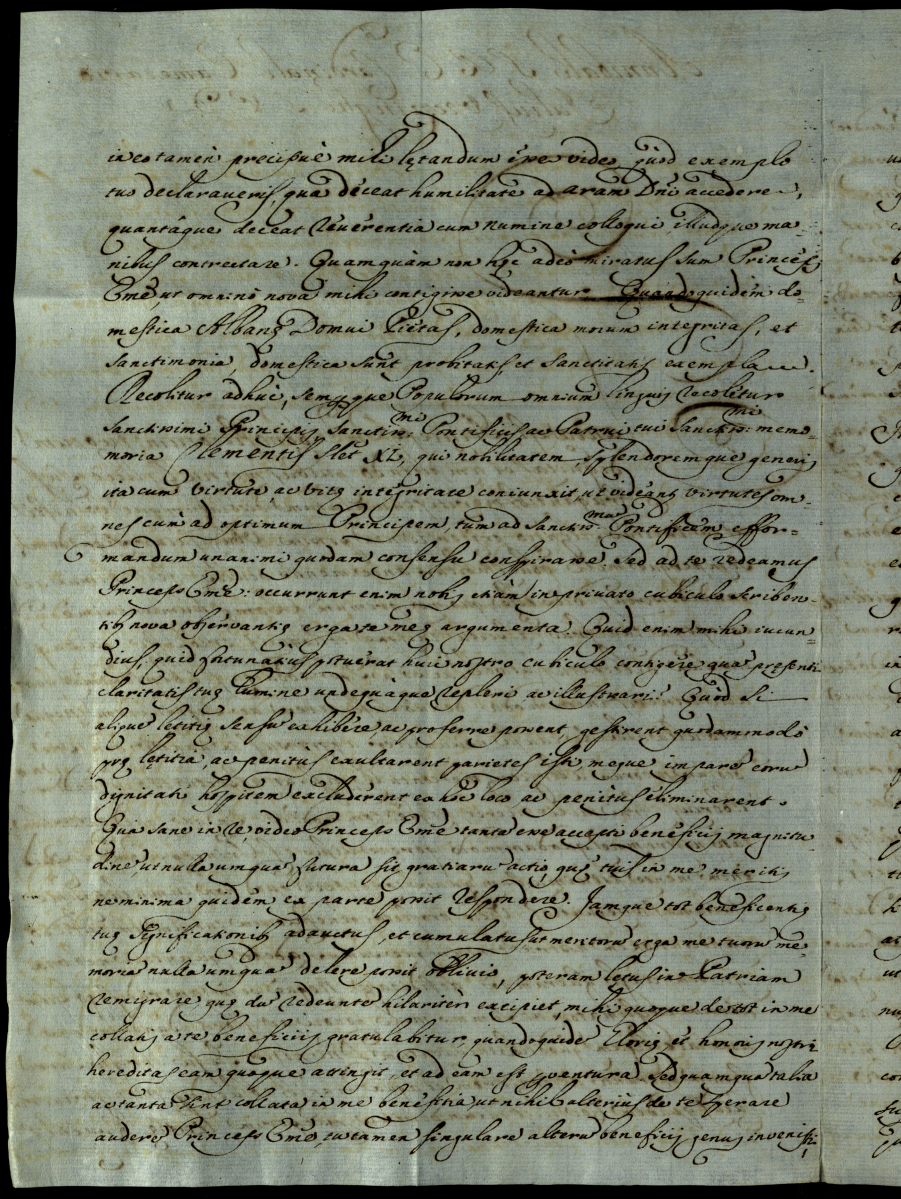 in eo tamen precipuè mihi lętandum esse video, quòd exemplo
tuo declaraveris, qua deceat humilitate ad aram Dni accedere,
quantâque deceat reverentia cum numine colloqui illudque ma=
nibus contrectare. Quamquàm non hęc adeò miratus sum Princeps
Eme, ut omninò nova mihi contigisse videantur. Quandoquidem do=
mestica Albanę Domui Pietas, domestica morum integritas, et
sanctimonia, domestica sunt probitatis, et sanctitatis exempla.
Recolitur adhuc, semperque Populorum omnium linguis recolitur
Sanctissimi Principis, Sanctiss:mi Pontificis, ac Patrui tui Sanctiss:mi memo=
moria Clementis PP. XI, qui nobilitatem, splendoremque generis
ita cum virtute, ac vitę integritate coniunxit, ut videantur virtutes om=
nes cùm ad optimum Principem, tùm ad Sanctiss:mum Pontificem effor=
mandum unanimi quodam consensu conspirasse. Sed ad te redeamus
Princeps Eme: occurrunt enim nobis etiàm in privato cubiculo scriben=
tibus nova observantię erga te meę argumenta. Quid enim mihi iucun=
dius, quid fortunatius potuerat huic nostro cubiculo contigere, qua presenti
claritatis tuę lumine undequàque repleri, ac illustrari? Quòd si
alique letitię sensu exhibere, ac proferre possent, gestirent quodammodò
prę lętitia, ac penitus exultarent parietes isti, meque imparem eorum
dignitati hospitem excluderent ex hoc loco ac penitus eliminarent.
Qua sane in re, video Princeps Eme tanta esse accepti beneficij magnitu
dine, ut nulla umqua futura sit gratiaru actio, quę tuis in me meritis
ne minima quidem ex parte possit respondere. Jamque tot beneficentię
tuę significationibus adauctus, et cumulatus, ut meritoru erga me tuoru me
moria nulla umqua delere possit oblivio, poteram letus in Patriam
remigrare quę du redeunte hilariter excipiet, mihi quoque de tot in me
collatis a te beneficijs gratulabitur, quandoquide Glorię, et honoris nostri
hereditas eam quoque attingit, et ad eam est perventura. Sed quamqua talia
ac tanta sint collata in me benefitia, ut nihil alterius de te sperare
audere, Princeps Eme, tu tamen singulare alteru beneficij genus invenisti,